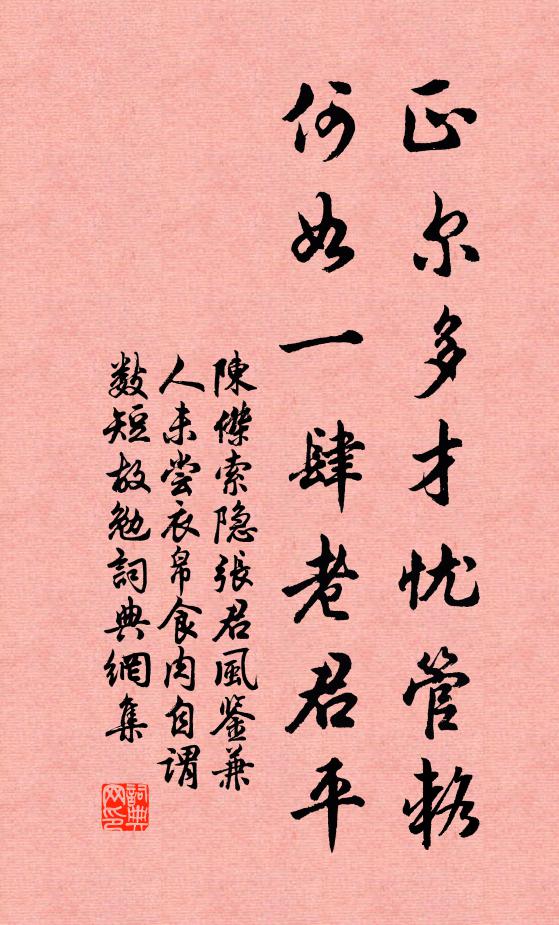 正尔多才忧管輅
何如一肆老君平
陳傑索隐張君風鉴兼
人未尝衣帛食肉自謂
数短故勉詞典網集
詞典
网印